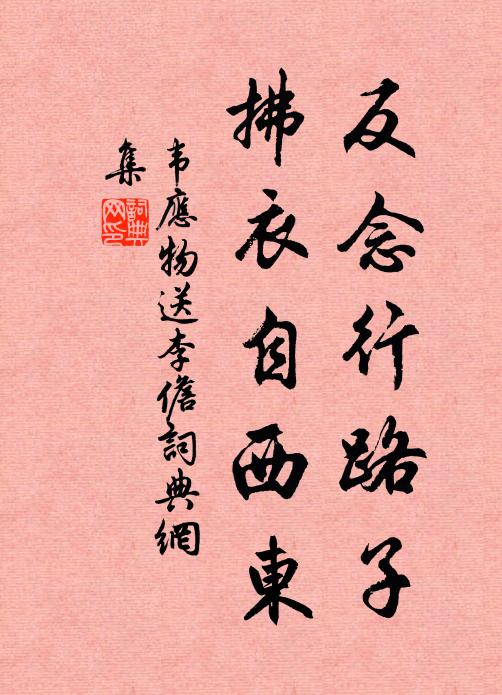 反念行路子
拂衣自西東
韦應物送李儋詞典網
集
詞典网印